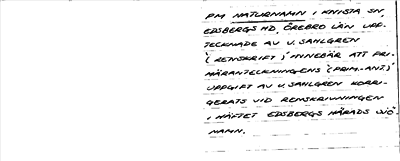 PM NATURNAMN I KNISTA SN,
EDSBERGS HD, ÖREBRO LÄN UPP-
TECKNADE AV U. SAHLGREN
(RENSKRIFT) INNEBÄR ATT PRI-
MÄRANTECKNINGENS (PRIM.-ANT.)
UPPGIFT AV U. SAHLGREN KORRI-
GERATS VID RENSKRIVNINGEN
I HÄFTET EDSBERGS HÄRADS SJÖ-
NAMN.